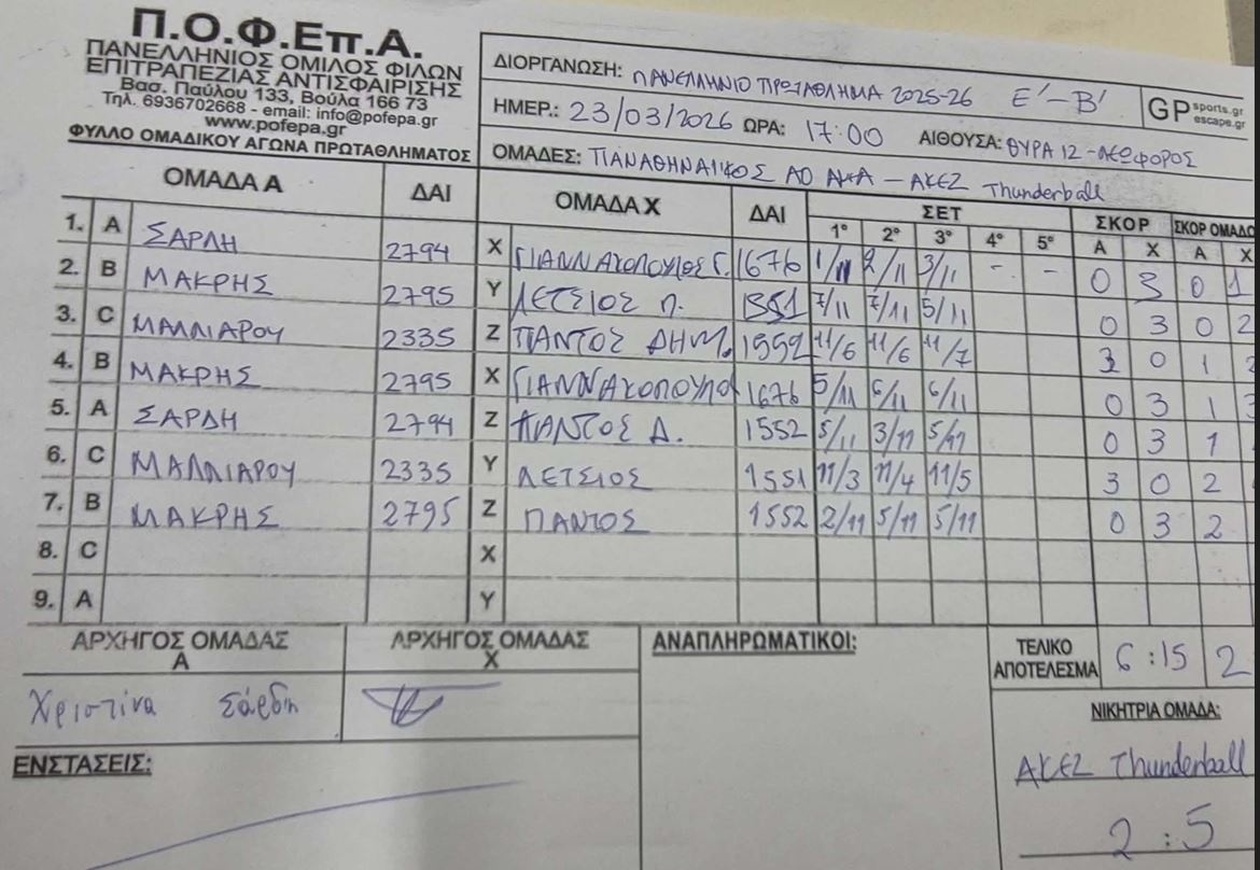 Π.Ο.Φ.Επ.Α.
ΠΑΝΕΛΛΗΝΙΟΣ ΟΜΙΛΟΣ ΦΙΛΩΝ
ΕΠΙΤΡΑΠΕΖΙΑΣ ΑΝΤΙΣΦΑΙΡΙΣΗΣ
Βασ. Παύλου 133, Βούλα 166 73
Τηλ. 6936702668 - email: info@pofepa.gr
www.pofepa.gr
ΦΥΛΛΟ ΟΜΑΔΙΚΟΥ ΑΓΩΝΑ ΠΡΩΤΑΘΛΗΜΑΤΟΣ
ΔΙΟΡΓΑΝΩΣΗ: ΠΑΝΕΛΛΗΝΙΟ ΠΡΩΤΑΘΛΗΜΑ 2025-26 Ε'-Β'
GP sports.gr escape.gr
ΗΜΕΡ.: 23/03/2026 ΩΡΑ: 17:00 ΑΙΘΟΥΣΑ: ΘΥΡΑ 12 - ΛΕΩΦΟΡΟΣ
ΟΜΑΔΕΣ: ΠΑΝΑΘΗΝΑΙΚΟΣ ΑΟ ΑΜΑ - ΑΚΕΖ Thunderball
ΟΜΑΔΑ Α ΔΑΙ ΟΜΑΔΑ Χ ΔΑΙ ΣΕΤ ΣΚΟΡ ΣΚΟΡ ΟΜΑΔΩ
1° 2° 3° 4° 5° Α Χ Α Χ
1. A ΣΑΡΔΗ 2794 X ΓΙΑΝΝΑΚΟΠΟΥΛΟΣ Γ. 1676 1/11 2/11 3/11 - - 0 3 0 1
2. B ΜΑΚΡΗΣ 2795 Y ΛΕΤΣΙΟΣ Π. 1551 7/11 7/11 5/11 0 3 0 2
3. C ΜΑΛΛΙΑΡΟΥ 2335 Z ΠΑΝΤΟΣ ΔΗΜ. 1552 11/6 11/6 11/7 3 0 1 2
4. B ΜΑΚΡΗΣ 2795 X ΓΙΑΝΝΑΚΟΠΟΥΛΟ 1676 5/11 6/11 6/11 0 3 1 3
5. A ΣΑΡΔΗ 2794 Z ΠΑΝΤΟΣ Δ. 1552 5/11 3/11 5/11 0 3 1
6. C ΜΑΛΛΙΑΡΟΥ 2335 Y ΛΕΤΣΙΟΣ 1551 11/3 11/4 11/5 3 0 2
7. B ΜΑΚΡΗΣ 2795 Z ΠΑΝΤΟΣ 1552 2/11 5/11 5/11 0 3 2
8. C X
9. A Y
ΑΡΧΗΓΟΣ ΟΜΑΔΑΣ Α
ΑΡΧΗΓΟΣ ΟΜΑΔΑΣ Χ
ΑΝΑΠΛΗΡΩΜΑΤΙΚΟΙ:
ΤΕΛΙΚΟ ΑΠΟΤΕΛΕΣΜΑ 6:15 2
Χριστίνα Σάρδη
ΝΙΚΗΤΡΙΑ ΟΜΑΔΑ:
ΑΚΕΖ Thunderball
ΕΝΣΤΑΣΕΙΣ:
2:5